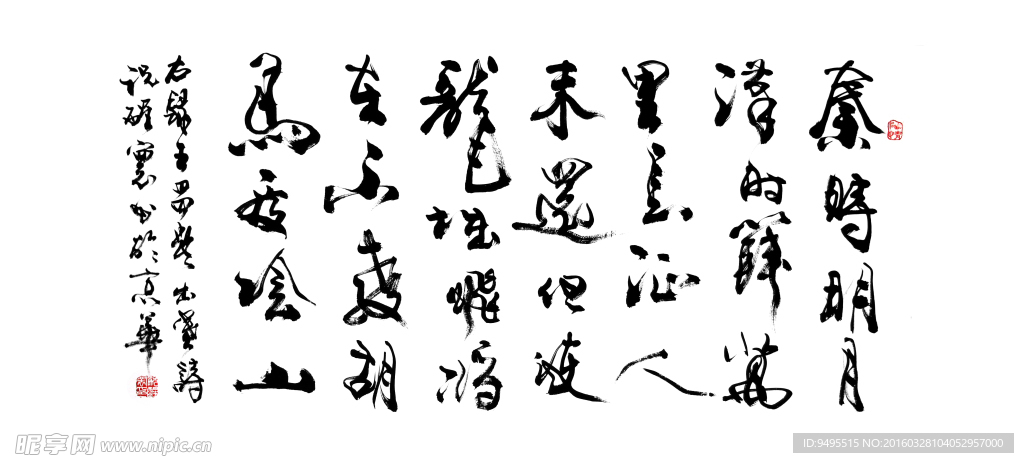 秦時明月
漢时關萬
里長征人
未還但使
龍城飛將
在不教胡
馬度陰山
右錄王昌齡出塞詩
書於京華
昵享网 www.nipic.cn
ID:9495515 NO:20160328104052957000